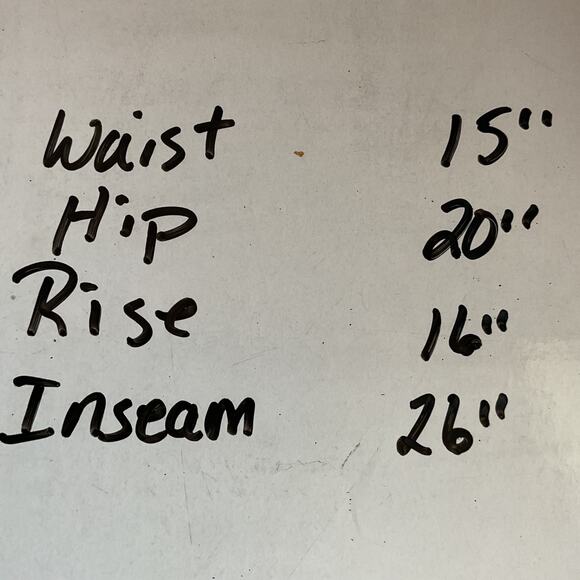 Waist 15"
Hip 20"
Rise 16"
Inseam 26"